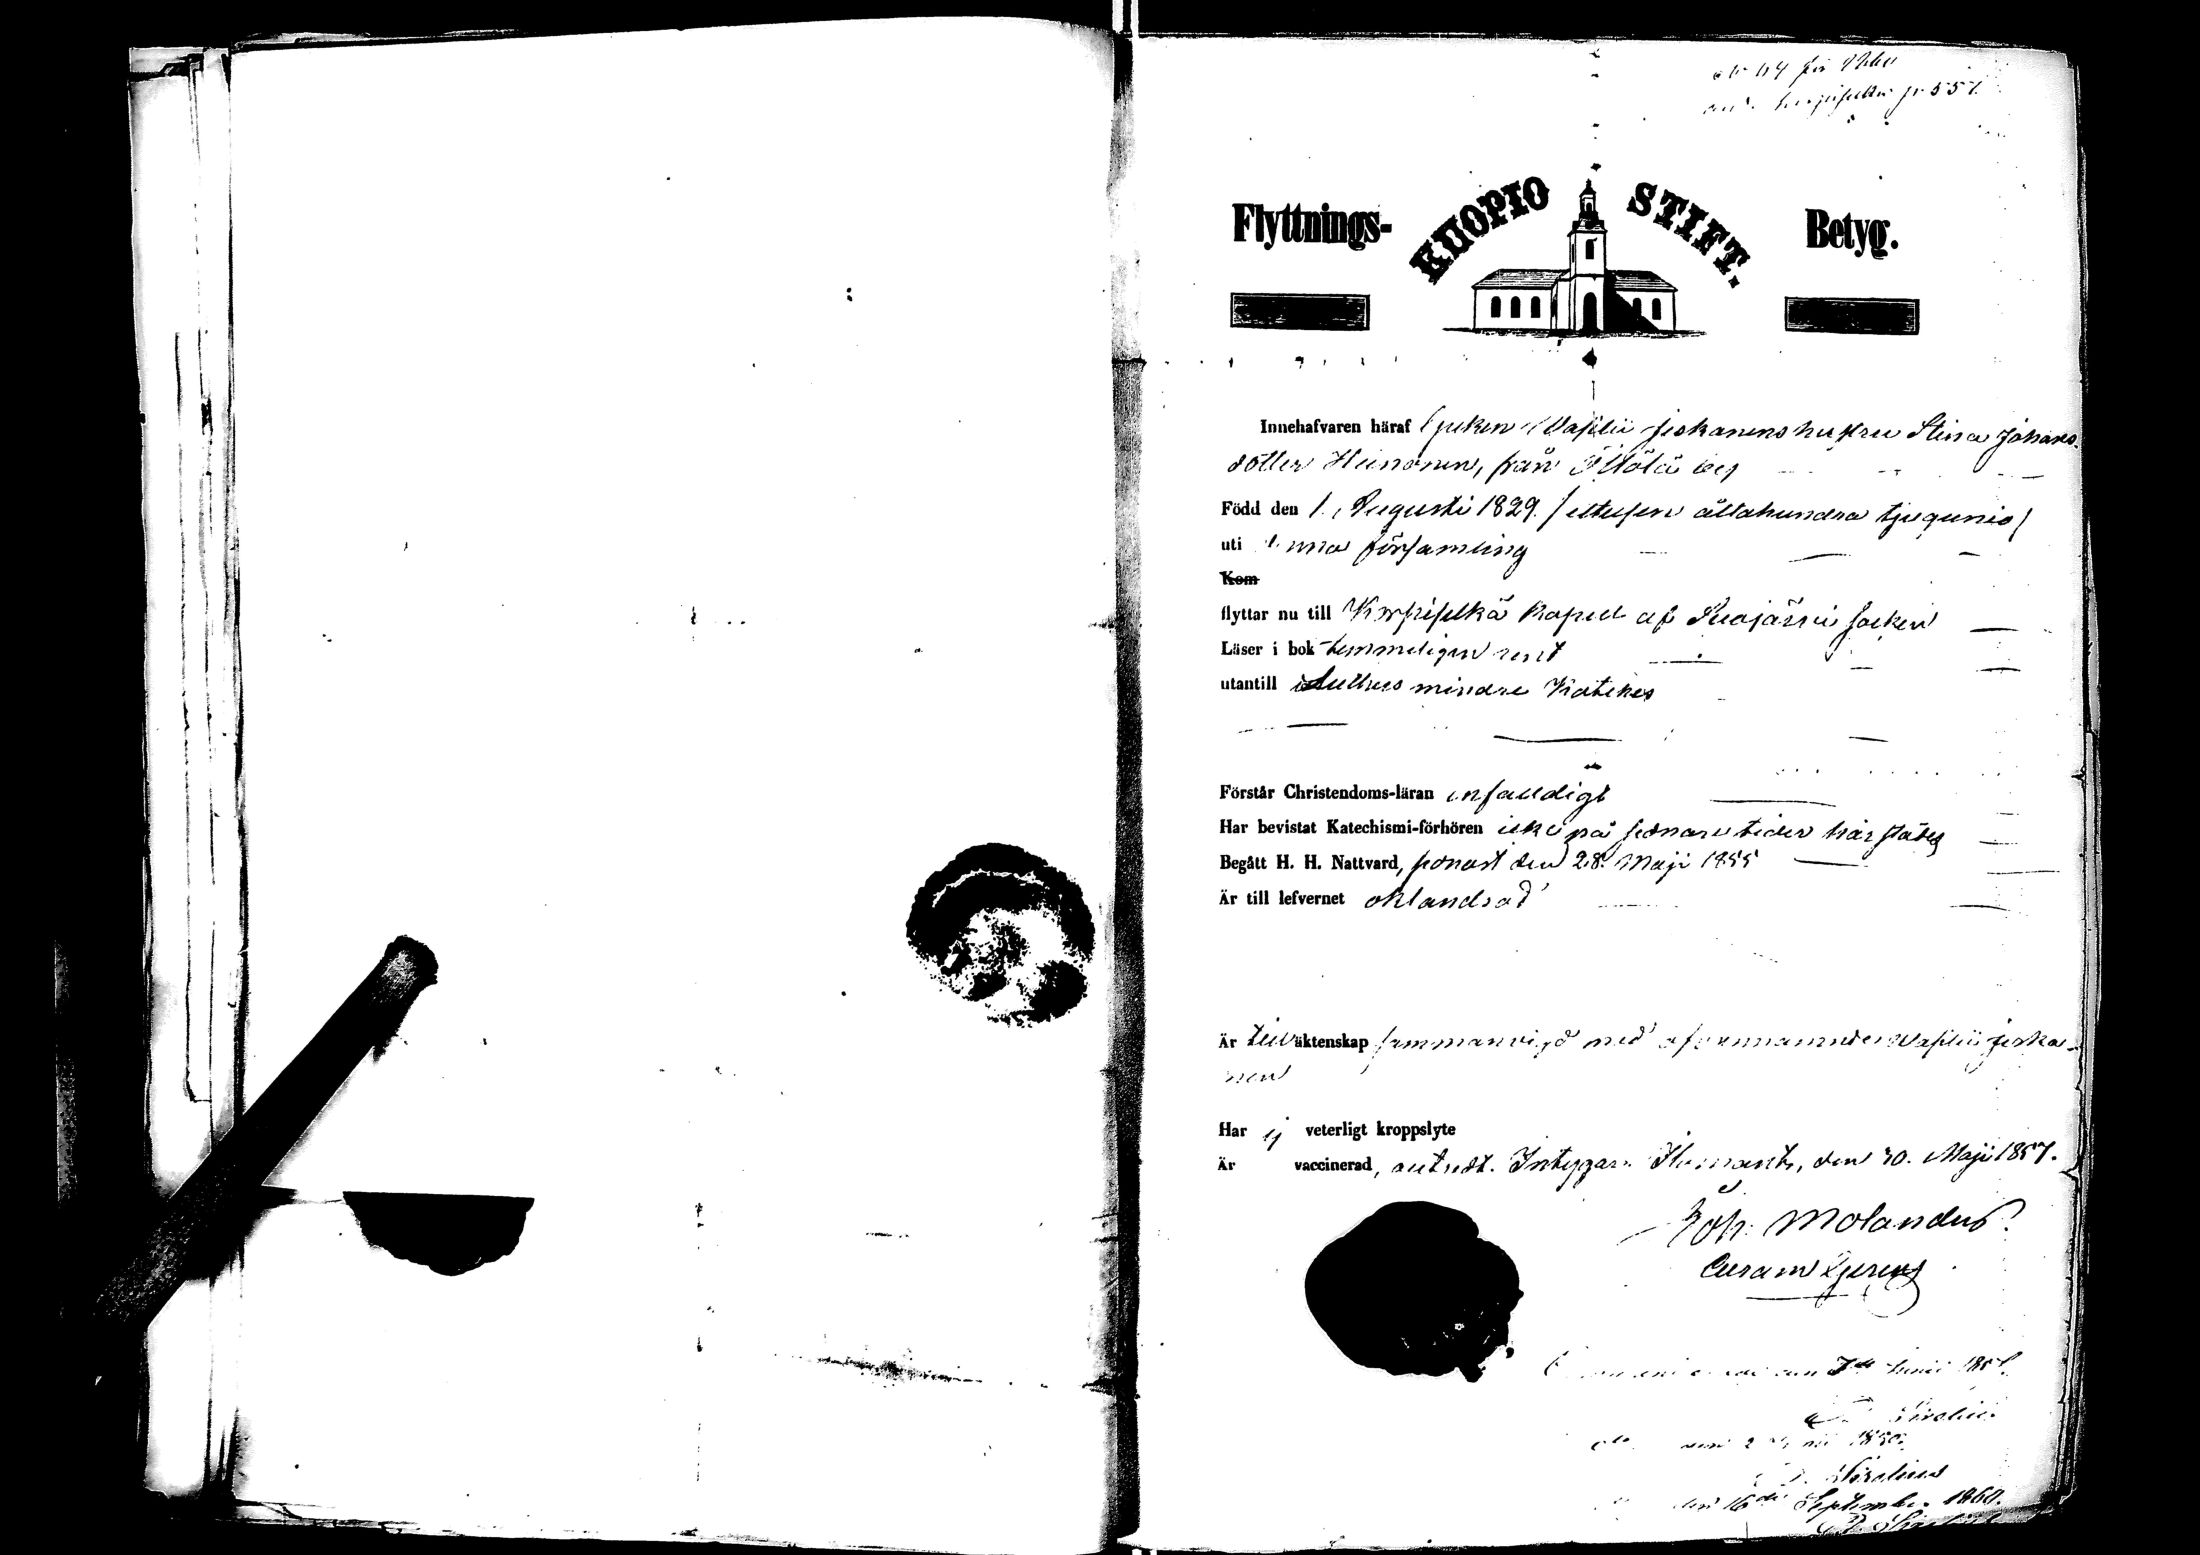 64 för 1860
Flyttnings- KUOPIO STIFT. Betyg.
Innehafvaren häraf Greken Wasilii Jeskanens hustru Stina Johans-
dotter Heinonen, från
Född den 1. Augusti 1829. / ettusen åttahundra tjugunio /
uti denna församling
Kom
flyttar nu till Korpiselkä kapell af Suojärvi socken
Läser i bok temmeligen rent
utantill Luthers mindre Katekes
Förstår Christendoms-läran enfaldigt
Har bevistat Katechismi-förhören icke på sednare tider härstädes
Begått H. H. Nattvard, senast den 28. Maji 1855
Är till lefvernet oklandrad
Är till äktenskap sammanvigd med ofvannämnde Wasilii Jeska-
nen
Har ej veterligt kroppslyte
Är vaccinerad, Intygar. Ilomants, den 30. Maji 1857.
Joh. Molandus.
den 7de Junii
Sirelius.
Sirelius
den 16de September 1860.